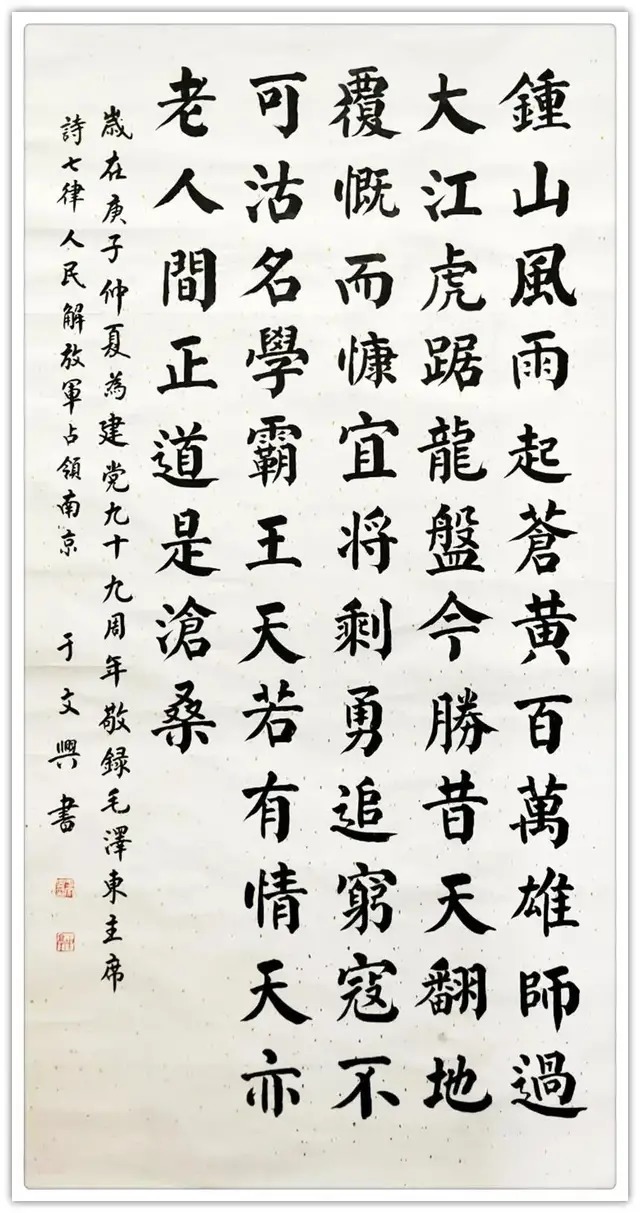 鍾山風雨起蒼黃百萬雄師過
大江虎踞龍盤今勝昔天翻地
覆慨而慷宜将剩勇追窮寇不
可沽名學霸王天若有情天亦
老人間正道是滄桑
歲在庚子仲夏為建党九十九周年敬録毛澤東主席
詩七律人民解放軍占領南京 于文興書